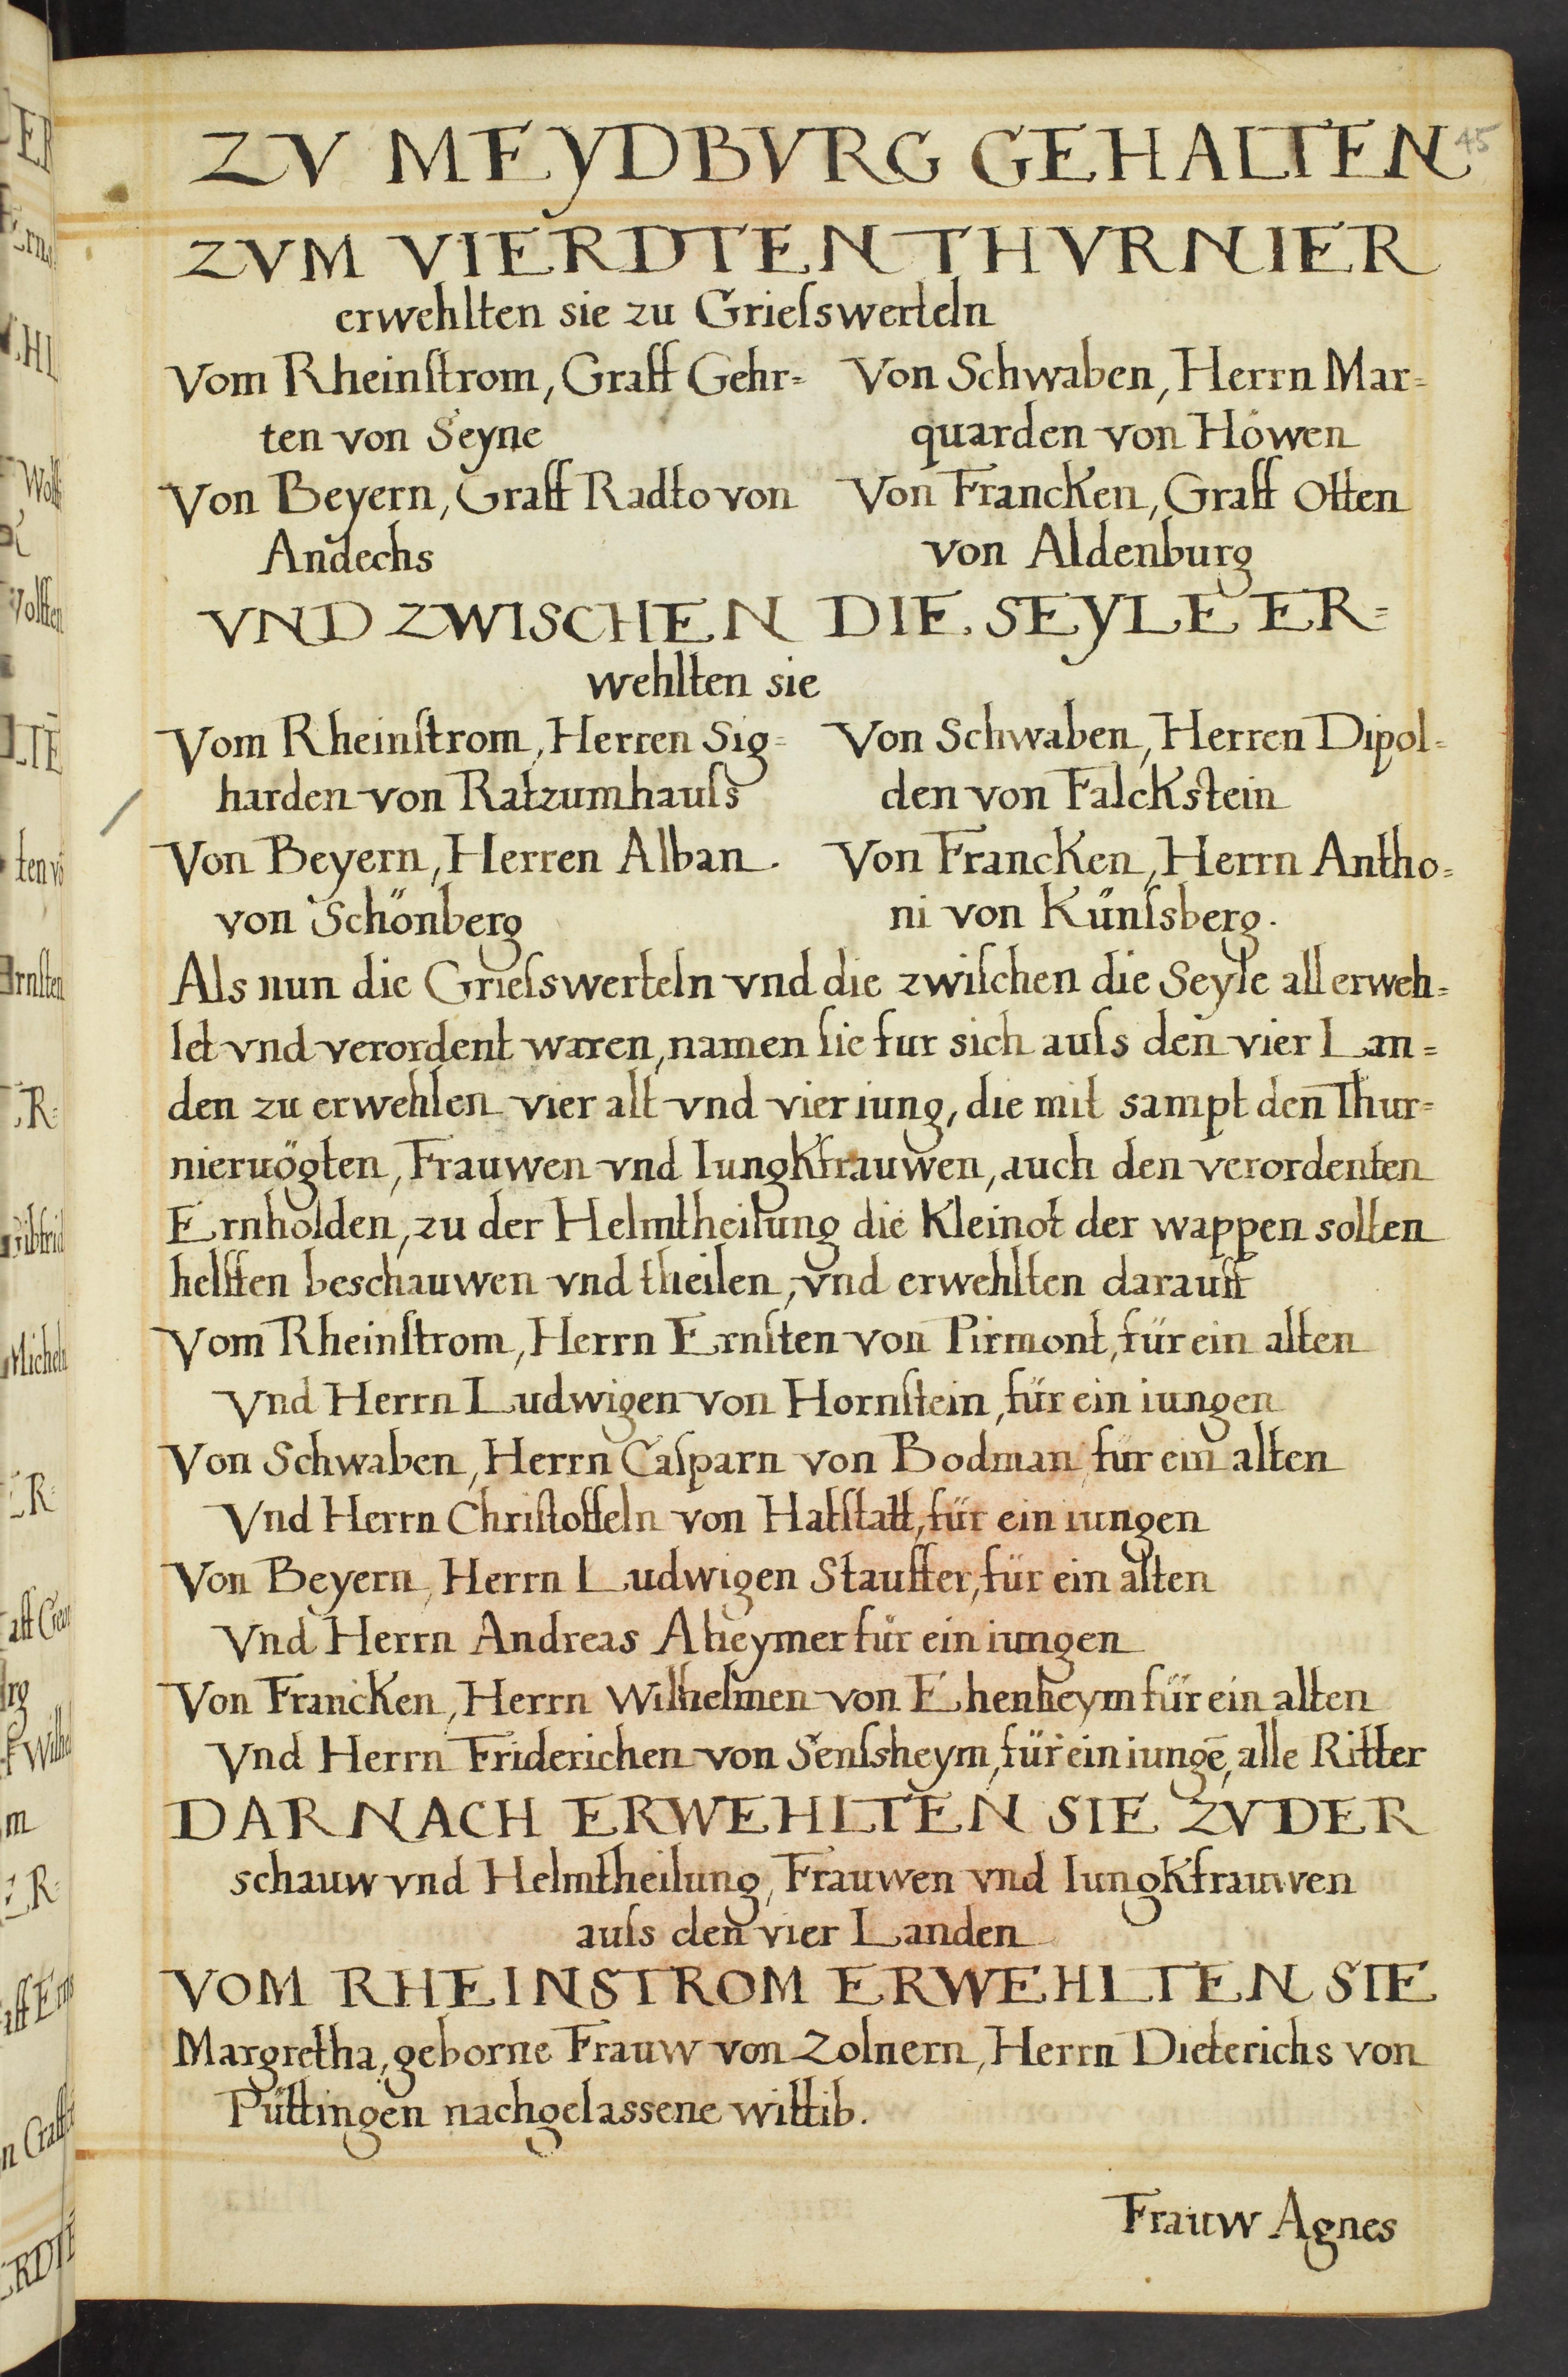 45
ZV MEYDBVRG GEHALTEN
ZVM VIERDTEN THVRNIER
erwehlten sie zu Grieſswerteln
Vom Rheinſtrom, Graff Gehr=
ten von Seyne
Von Beyern, Graff Radto von
Andechs
Von Schwaben, Herrn Mar=
quarden von Höwen
Von Francken, Graff Otten
von Aldenburg
VND ZWISCHEN DIE SEYLE ER=
wehlten sie
Vom Rheinſtrom, Herren Sig=
harden von Ratzumhauſs
Von Beyern, Herren Alban
von Schönberg
Von Schwaben, Herren Dipol=
den von Falckstein
Von Francken, Herrn Antho=
ni von Künſsberg.
Als nun die Grieſswerteln vnd die zwiſchen die Seyle all erweh=
let vnd verordent waren, namen ſie fur sich auſs den vier Lan=
den zu erwehlen vier alt vnd vier iung, die mit sampt den Thur=
nieruögten, Frauwen vnd Iungkfrauwen, auch den verordenten
Ernholden, zu der Helmtheilung die Kleinot der wappen solten
helffen beschauwen vnd theilen, vnd erwehlten darauff
Vom Rheinſtrom, Herrn Ernſten von Pirmont, für ein alten
Vnd Herrn Ludwigen von Hornſtein, für ein iungen
Von Schwaben, Herrn Caſparn von Bodman für ein alten
Vnd Herrn Chriſtoffeln von Hatſtatt, für ein iungen
Von Beyern, Herrn Ludwigen Stauffer, für ein alten
Vnd Herrn Andreas Aheymer für ein iungen
Von Francken, Herrn Wilhelmen von Ehenheym für ein alten
Vnd Herrn Friderichen von Senſsheym, für ein iungē, alle Ritter
DARNACH ERWEHLTEN SIE ZV DER
schauw vnd Helmtheilung, Frauwen vnd Iungkfrauwen
auſs den vier Landen
VOM RHEINSTROM ERWEHLTEN SIE
Margretha, geborne Frauw von Zolnern, Herrn Dieterichs von
Püttingen nachgelassene wittib.
Frauw Agnes